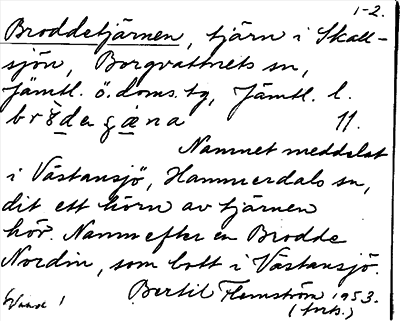 1-2.
Broddetjärnen, tjärn i Skall-
sjön, Borgvattnets sn,
Jämtl. ö. doms. tg, Jämtl. l.
11.
Namnet meddelat
i Västansjö, Hammerdals sn,
dit ett hörn av tjärnen
hör. Namn efter en Brodde
Nordin, som bott i Västansjö.
Bertil Flemström 1953.
(forts.)